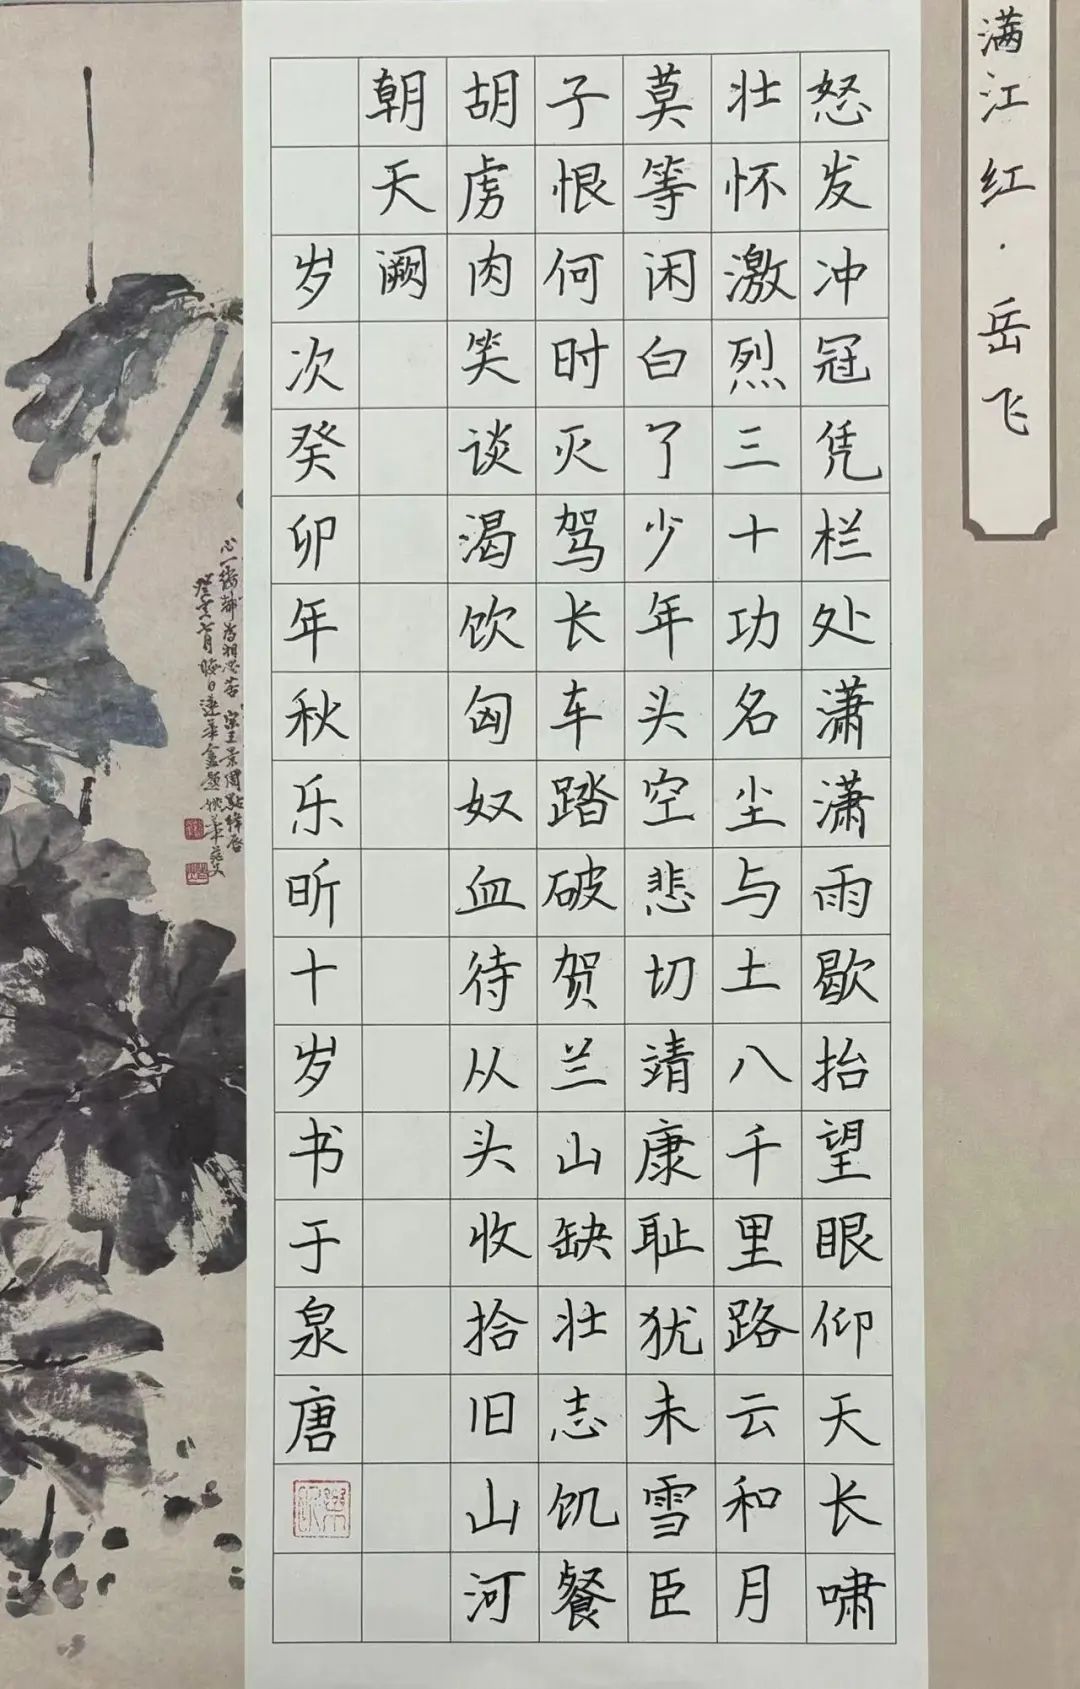 满江红·岳飞
怒发冲冠凭栏处潇潇雨歇抬望眼仰天长啸
壮怀激烈三十功名尘与土八千里路云和月
莫等闲白了少年头空悲切靖康耻犹未雪臣
子恨何时灭驾长车踏破贺兰山缺壮志饥餐
胡虏肉笑谈渴饮匈奴血待从头收拾旧山河
朝天阙
岁次癸卯年秋乐昕十岁书于泉唐